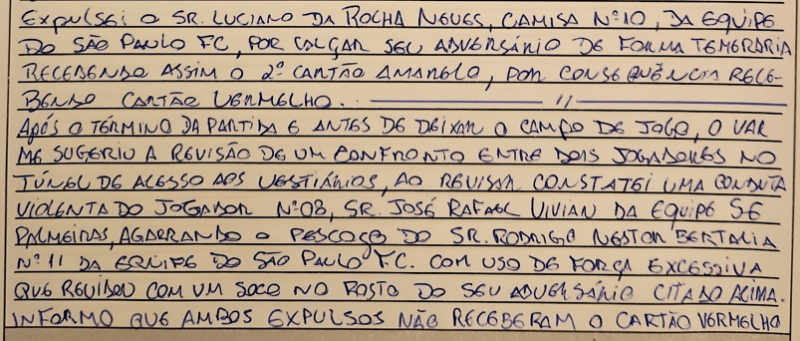 EXPULSEI O SR. LUCIANO DA ROCHA NEVES, CAMISA Nº10, DA EQUIPE
DO SÃO PAULO FC, POR CALÇAR SEU ADVERSÁRIO DE FORMA TEMERÁRIA
RECEBENDO ASSIM O 2º CARTÃO AMARELO, POR CONSEQUÊNCIA RECE-
BENDO CARTÃO VERMELHO. ——— // ———
APÓS O TÉRMINO DA PARTIDA E ANTES DE DEIXAR O CAMPO DE JOGO, O VAR
ME SUGERIU A REVISÃO DE UM CONFRONTO ENTRE DOIS JOGADORES NO
TÚNEL DE ACESSO AOS VESTIÁRIOS, AO REVISAR CONSTATEI UMA CONDUTA
VIOLENTA DO JOGADOR Nº08, SR. JOSÉ RAFAEL VIVIAN DA EQUIPE SE
PALMEIRAS, AGARRANDO O PESCOÇO DO SR. RODRIGO NESTOR BERTALIA
Nº11 DA EQUIPE DO SÃO PAULO FC. COM USO DE FORÇA EXCESSIVA
QUE REVIDOU COM UM SOCO NO ROSTO DO SEU ADVERSÁRIO CITADO ACIMA.
INFORMO QUE AMBOS EXPULSOS NÃO RECEBERAM O CARTÃO VERMELHO